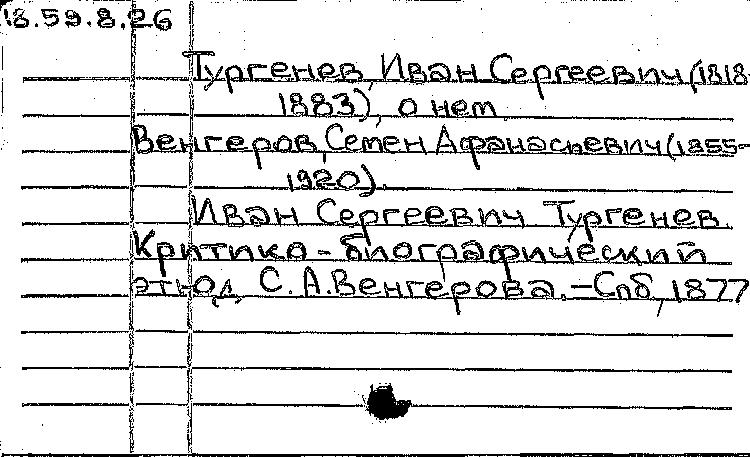 18.59.8.26
Тургенев, Иван Сергеевич (1818-
1883), о нем
Венгеров, Семен Афанасьевич (1855-
1920).
Иван Сергеевич Тургенев.
Критико-биографический
этюд С.А.Венгерова.-Спб, 1877